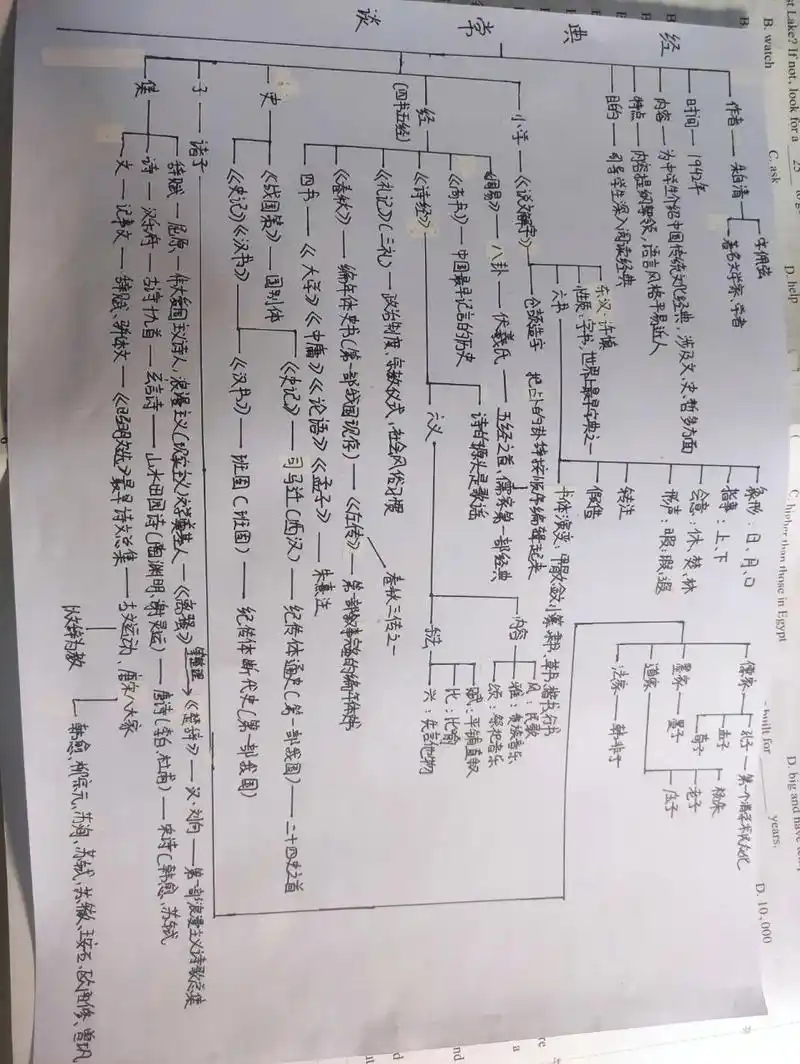 经典常谈
作者 — 朱自清
字佩弦
著名文学家、学者
时间 — 1942年
内容 — 为中学生介绍中国传统文化经典，涉及文、史、哲多方面
特点 — 内容提纲挈领，语言风格平易近人
目的 — 引导学生深入阅读经典
小学 — 《说文解字》
东汉：许慎
性质：字书，世界上最早字典之一
六书
象形：日、月、口
指事：上、下
会意：休、焚、林
形声：暇、瑕、遐
转注
假借
书体演变：甲骨文、金文、小篆、隶书、草书、楷书、行书
仓颉造字
经
(四书五经)
《周易》— 八卦 — 伏羲氏 — 五经之首，儒家第一部经典
把占卜的卦辞按顺序编辑起来
《尚书》— 中国最早记言的历史
《诗经》
诗的源头是歌谣
六义
内容
风：民歌
雅：贵族音乐
颂：祭祀音乐
赋：平铺直叙
比：比喻
兴：先言他物
《礼记》(三礼) — 政治制度、宗教仪式、社会风俗习惯
《春秋》— 编年体史书(第一部我国现存) — 《左传》— 第一部叙事完备的编年体史书
春秋三传之一
四书 — 《大学》《中庸》《论语》《孟子》— 朱熹注
史
《战国策》— 国别体
《史记》《汉书》
《史记》— 司马迁(西汉) — 纪传体通史(第一部我国) — 二十四史之首
《汉书》— 班固(班固) — 纪传体断代史(第一部我国)
子 — 诸子
儒家
孔子 — 第一个
孟子
荀子
墨家 — 墨子
道家
杨朱
老子
庄子
法家 — 韩非子
集
辞赋 — 屈原 — 伟大爱国主义诗人，浪漫主义(现实主义)文学奠基人 — 《离骚》 → 《楚辞》— 汉·刘向 — 第一部浪漫主义诗歌总集
诗 — 汉乐府 — 古诗十九首 — 玄言诗 — 山水田园诗(陶渊明、谢灵运) — 唐诗(李白、杜甫) — 宋诗(韩愈、苏轼
文 — 记事文 — 辞赋、骈体文 — 《昭明文选》最早诗文总集 — 古文运动、唐宋八大家
以散文为教
韩愈、柳宗元、苏洵、苏轼、苏辙、王安石、欧阳修、曾巩
st Lake? If not, look for a 25
B. watch
C. ask
D. help
C. higher than those in Egypt
D. big and have
built for
years.
D. 10,000